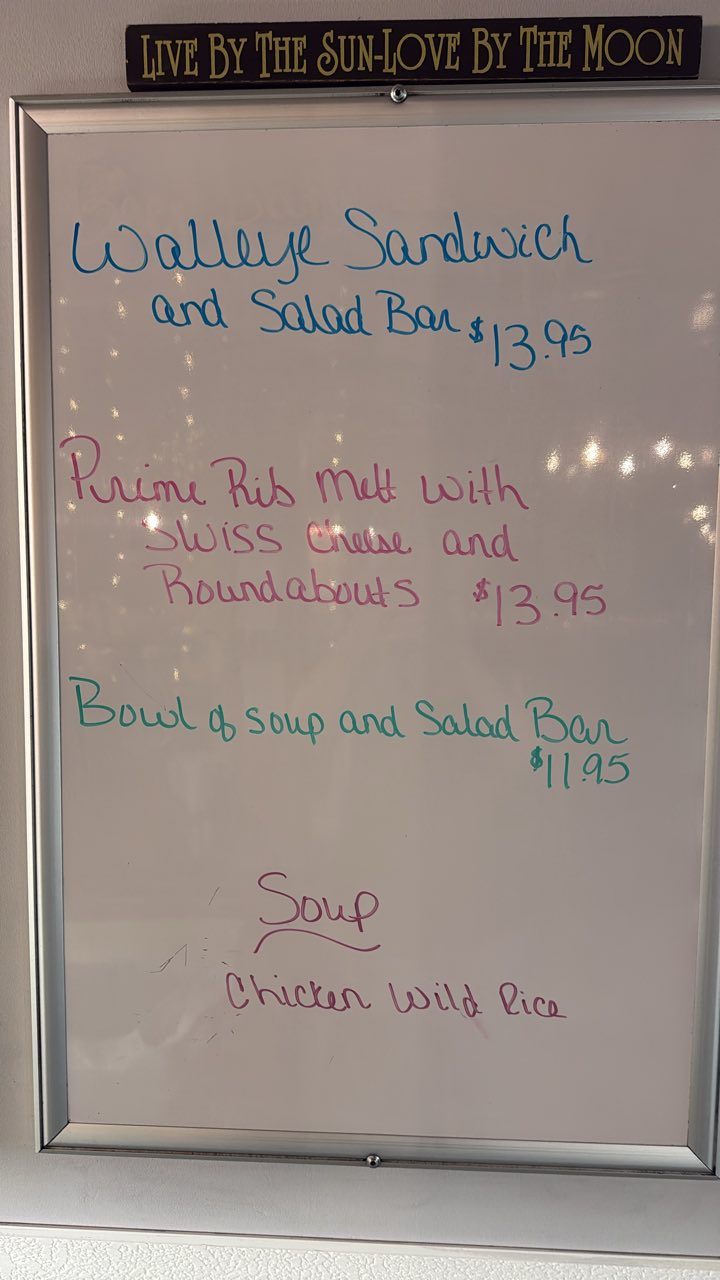 LIVE BY THE SUN-LOVE BY THE MOON
Walleye Sandwich
and Salad Bar $13.95
Prime Rib Melt with
Swiss Cheese and
Roundabouts $13.95
Bowl of soup and Salad Bar
$11.95
Soup
Chicken Wild Rice